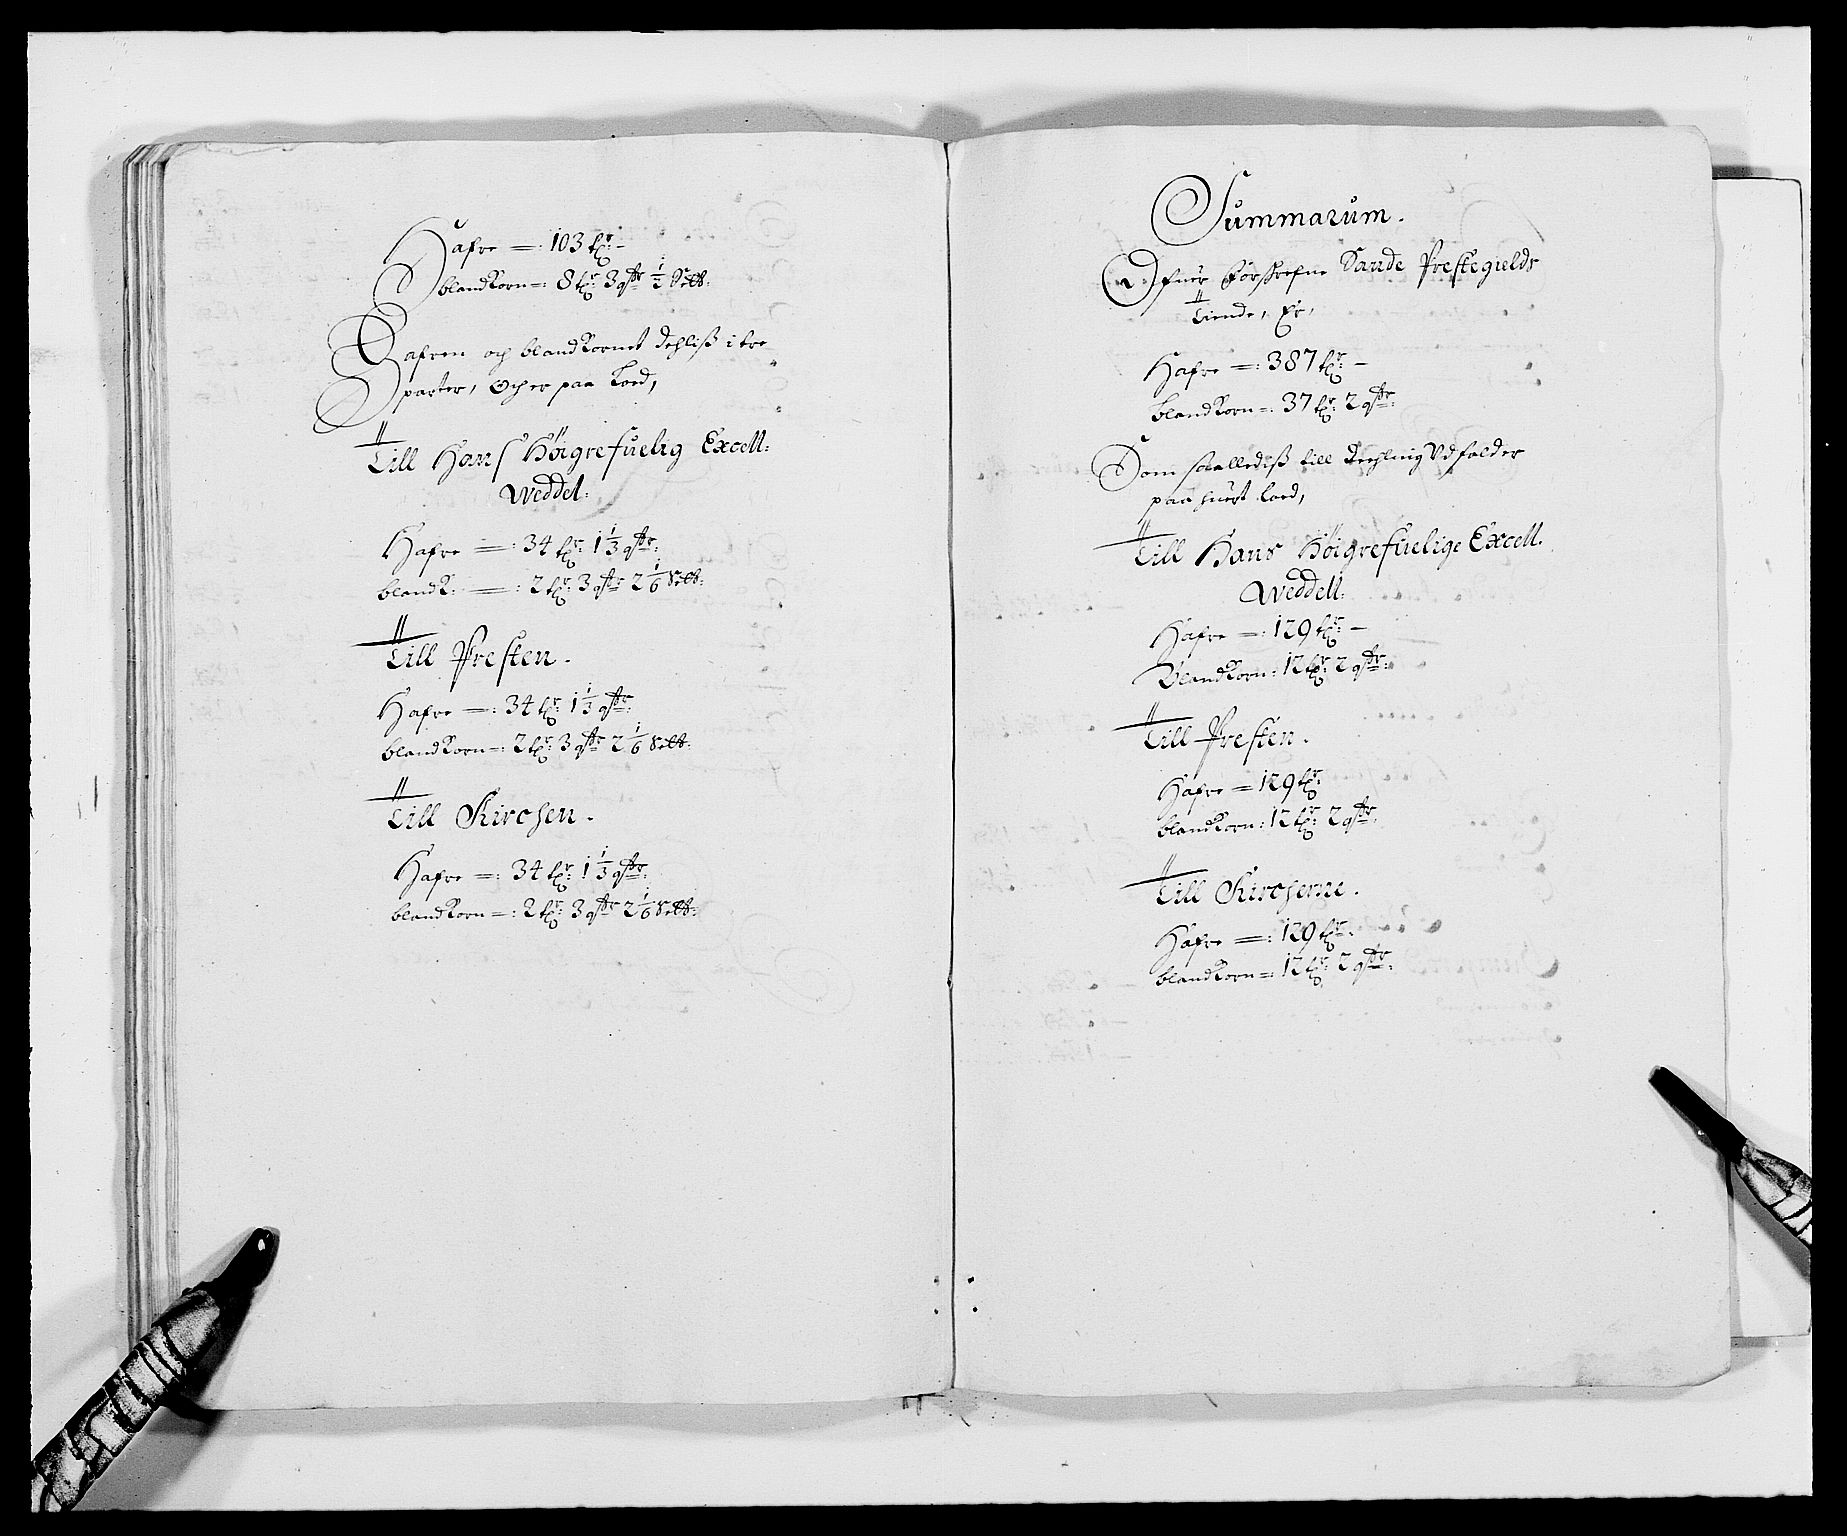 Hafre =: 103 tr: –
blandKorn =: 8 tr: 3 qttr ½ Sett:
Hafren och blandKornet dehliß i tre
parter, Och er paa Loed,
Till Hans Höigrefuelig Excell:
Weddel:
Hafre =: 34 tr: 1⅓ qttr:
blandK: =: 2 tr: 3 qttr 2⅙ Sett:
Till Presten.
Hafre =: 34 tr: 1⅓ qttr:
blandKorn =: 2 tr: 3 qttr 2⅙ Sett:
Till Kirchen.
Hafre =: 34 tr: 1⅓ qttr:
blandKorn =: 2 tr: 3 qttr 2⅙ Sett:
Summarum.
Ofuer Forschrefne Sande Prestegields
Tiende, Er,
Hafre =: 387 tr: –
blandKorn =: 37 tr: 2 qttr:
Som saallediß till Deehling Vdfalder
paa huert Loed,
Till Hans Höigrefuelige Excell.
Weddell:
Hafre =: 129 tr: –
BlandKorn: 12 tr: 2 qttr:
Till Presten.
Hafre = 129 tr:
blandKorn: 12 tr: 2 qttr:
Till Kircherne.
Hafre =: 129 tr:
blandKorn =: 12 tr: 2 qttr: